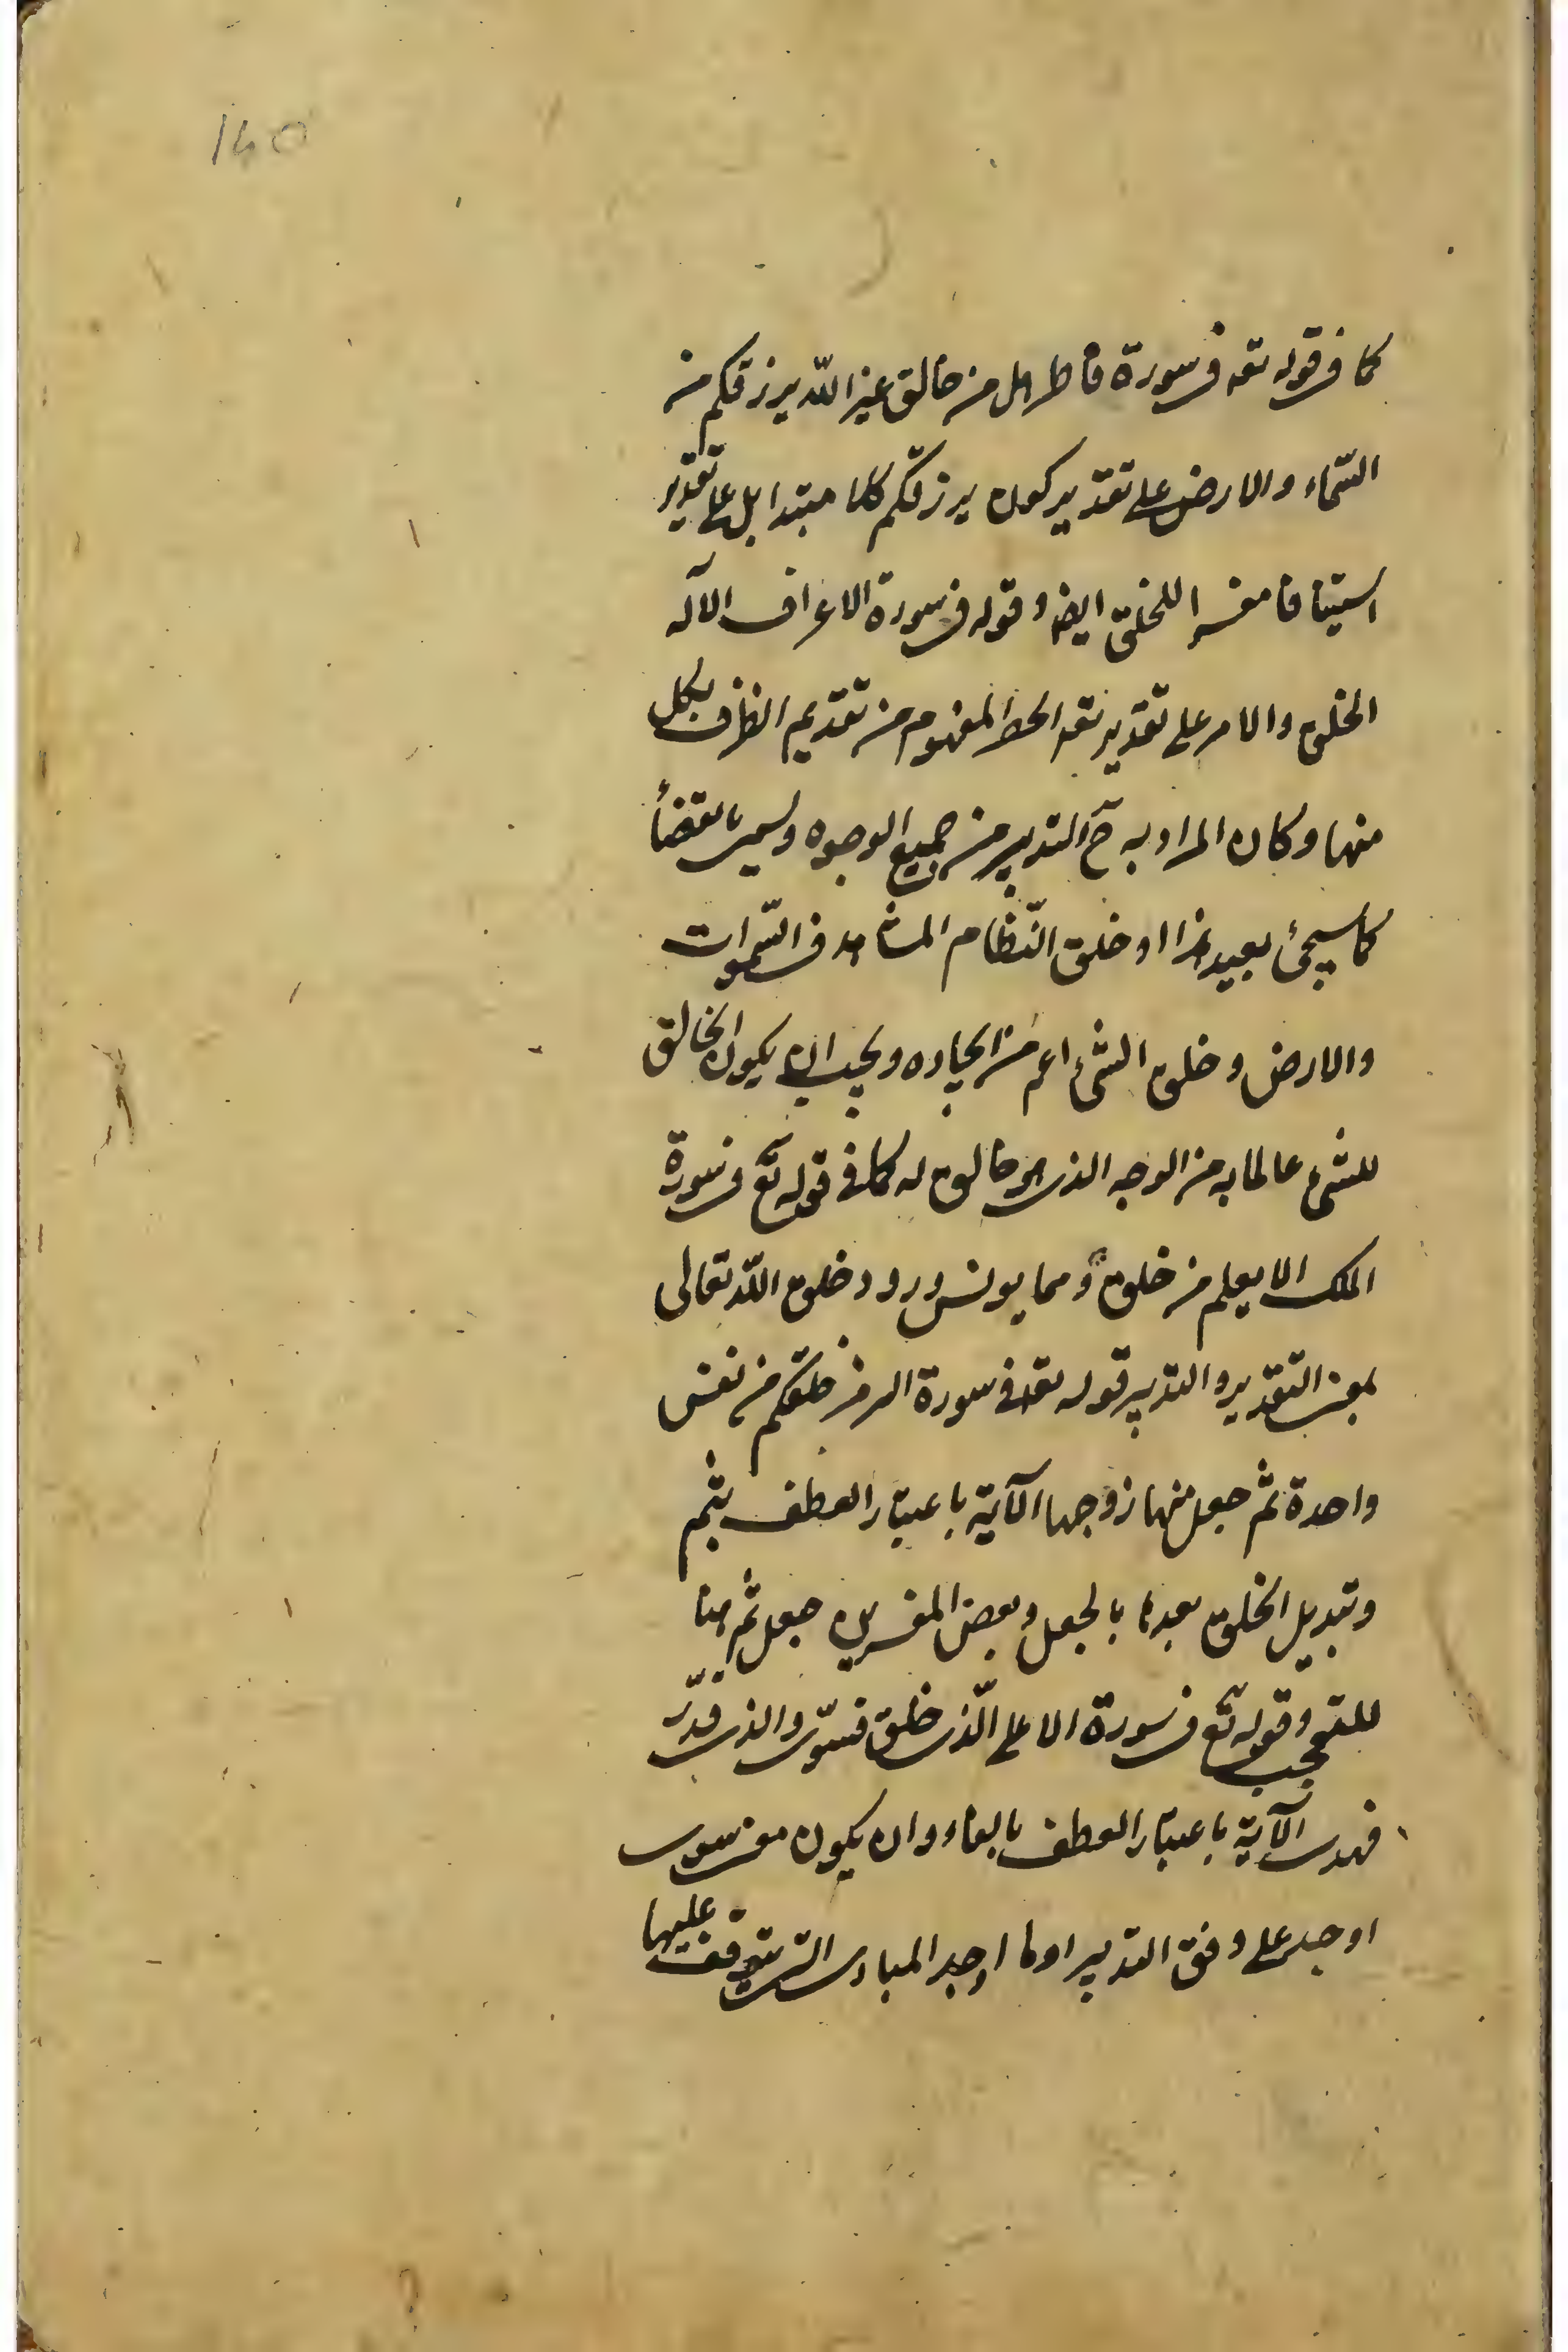 140
كما فى قوله تعه فى سورة فاطر هل من خالق غير الله يرزقكم من
السّماء والارض على تقدير كون يرزقكم كلاما مبتدا بل على تقدير
استينافا مفسرا للخلق ايضا وقوله فى سورة الاعراف الآ له
الخلق والامر على تقدير تعلق الحصر المفهوم من تقديم الظرف بكل
منهما وكان المراد به ح التدبير من جميع الوجوه ويسمى بالقضاء
كما سيجئ بعيد هذا او خلق النّظام المشاهد فى السّموات
والارض وخلق الشئ اعم من ايجاده ويجب ان يكون الخالق
للشئ عالما به من الوجه الذى هو خالق له كما فى قوله تع فى سورة
الملك الا يعلم من خلق ومما يونس ورود خلق الله تعالى
بمعنى التقدير والتدبير قوله تعه فى سورة الزمر خلقكم من نفس
واحدة ثم جعل منها زوجها الآية باعتبار العطف بثم
وتبديل الخلق بعدها بالجعل وبعض المفسرين جعل ثم هنا
للتعجب وقوله تع فى سورة الاعلى الّذى خلق فسوّى والذى قدّر
فهدى الآية باعتبار العطف بالفاء وان يكون معنى سوى
اوجد على وفق التدبير اولا اوجد المبادى التى يتوقف عليها